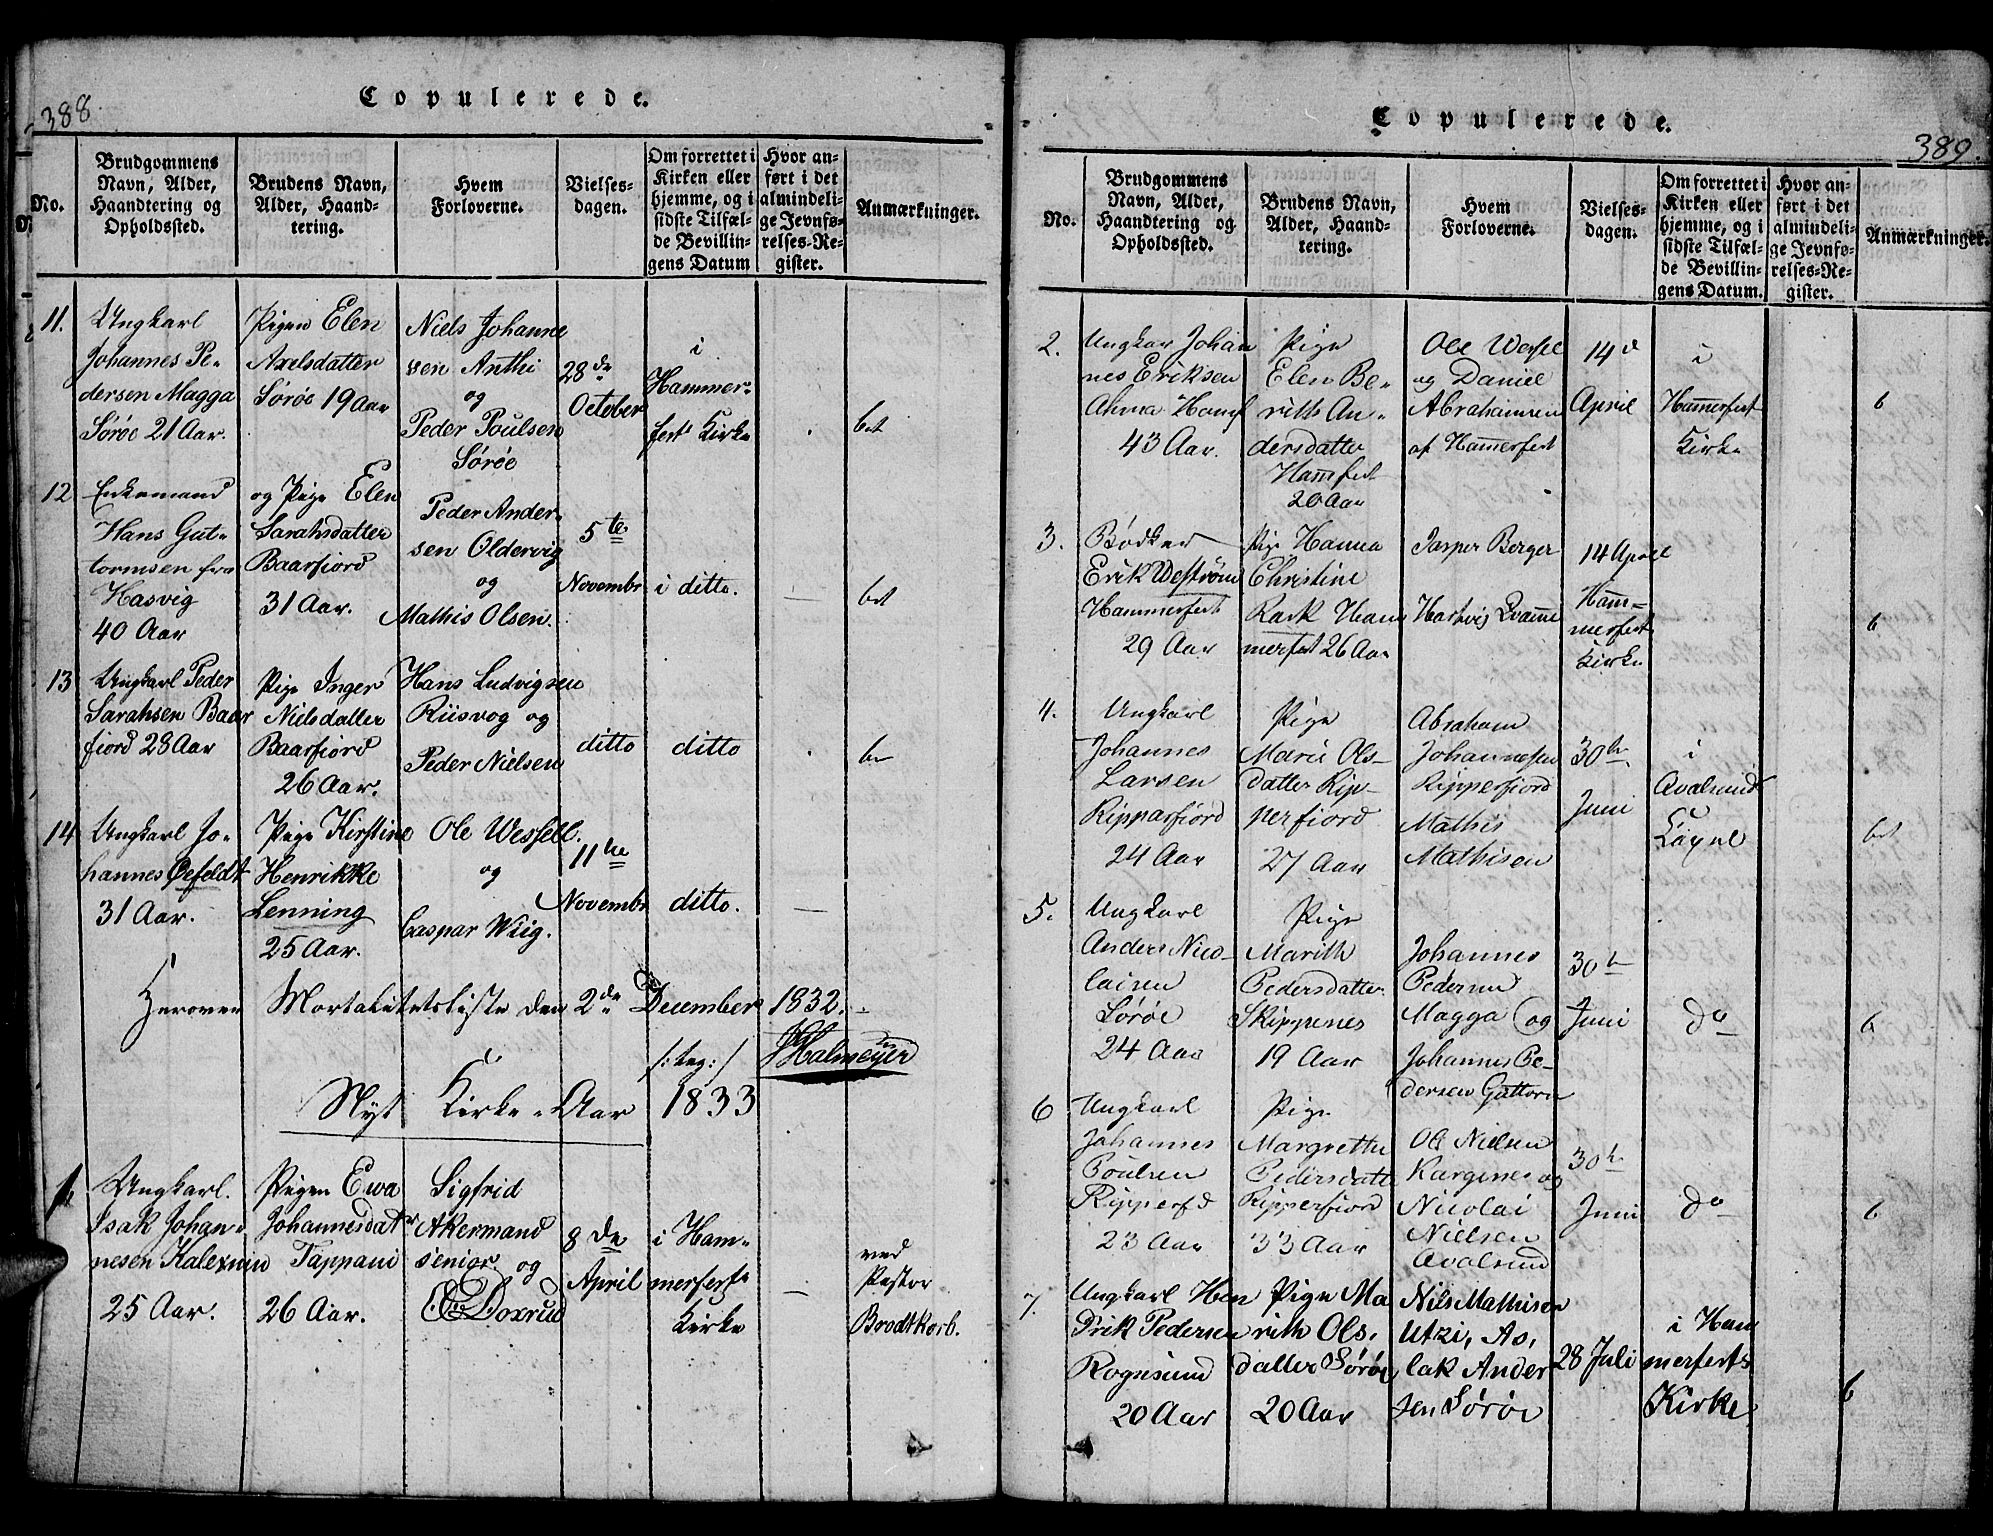 388.
Copulerede.
No.
Brudgommens
Navn, Alder,
Haandtering og
Opholdssted.
Brudens Navn,
Alder, Haand-
tering.
Hvem
Forloverne.
Vielses-
dagen.
Om forrettet i
Kirken eller
hjemme, og i
sidste Tilfæl-
de Bevillin-
gens Datum
Hvor an-
ført i det
almindeli-
ge Jevnfø-
relses-Re-
gister.
Anmærkninger.
11.
Ungkarl
Johannes Pe-
dersen Magga
Sørøe 21 Aar.
Pigen Elen
Axelsdatter
Sørøe 19 Aar
Niels Johanne
sen Anthi
og
Peder Poulsen
Sørøe
28de
October
i
Hammer-
fest Kirke
bet
12
Enkemand
Hans Gut-
tormsen fra
Hasvig
40 Aar
og Pige Elen
Sarahsdatter
Baarfiord
31 Aar.
Peder Ander-
sen Oldervig
og
Mathis Olsen.
5te
Novembr
i ditto.
bet
13
Ungkarl Peder
Sarahsen Baar
fiord 28 Aar
Pige Inger
Nielsdatter
Baarfiord
26 Aar.
Hans Ludvigsen
Riisvog og
Peder Nielsen
ditto
ditto
be
14
Ungkarl Jo-
hannes Øefeldt
31 Aar.
Pige Kirstine
Henrikke
Lenning
25 Aar.
Ole Wessell.
og
Caspar Wiig.
11te
Novembr
ditto.
Herover Mortalitetsliste den 2de December 1832.
/: teg: / Halmeyer
Nyt Kirke-Aar 1833
1
Ungkarl.
Isak Johan-
nesen Kalexnin
25 Aar.
Pigen Ewa
Johannesdatr
Tappani
26 Aar.
Sigfrid
Akermand
senior og
Doxrud
8de
April
i Ham-
merfest
Kirke
ved
Pastor
Brodtkorb.
Copulerede.
389.
No.
Brudgommens
Navn, Alder,
Haandtering og
Opholdssted.
Brudens Navn,
Alder, Haand-
tering.
Hvem
Forloverne.
Vielses-
dagen.
Om forrettet i
Kirken eller
hjemme, og i
sidste Tilfæl-
de Bevillin-
gens Datum.
Hvor an-
ført i det
almindeli-
ge Jevnfø-
relses-Re-
gister.
Anmærkninger.
2.
Ungkar Johan
nes Eriksen
Ahma Hamf
43 Aar.
Pige
Elen Be-
rith An-
dersdatter
Hamfest
20 Aar
Ole Wessel
og Daniel
Abrahamsen
af Hamerfest
14d
April
i
Hamerfest
Kirke
b
3.
Bødker
Erik Weström
Hammerfest
29 Aar
Pige Hanna
Christine
Rask Ham
merfest 26 Aar
Jasper Berger
Hartvig
14 April
Ham-
merfest
Kirke
b
4.
Ungkarl
Johannes
Larsen
Ripparfiord
24 Aar
Pige
Marie Ols-
datter Rip-
perfiord
27 Aar
Abraham
Johannessen
Ripperfiord
Mathis
Mathisen
30te
Juni
i
Avalsund
Capel
bet
5.
Ungkarl
Anders Nico-
laisen
Sørøe
24 Aar
Pige
Marith
Pedersdatter
Skippenes
19 Aar
Johannes
Pedersen
Magga og
Johannes Pe-
dersen Guttorm
30te
Juni
do
b
6
Ungkarl
Johannes
Poulsen
Ripperfd
23 Aar
Pige
Margrethe
Pedersdatt
Ripperfiord
33 Aar
Ole Nielsen
Kargenes og
Nicolai
Nielsen
Avalsund
30te
Juni
do
b
7.
Ungkarl Hen
drik Pedersen
Rognsund
20 Aar
Pige Ma
rith Ols.
datter Sørøe
20 Aar
Nils Mathisen
Utzi, As,
lak Ander
sen Sørøe
28 Juli
i Ham
merfests
Kirke
b